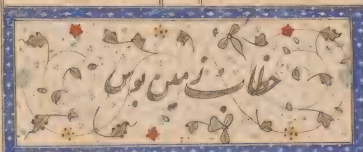 خطاب زمین بوس